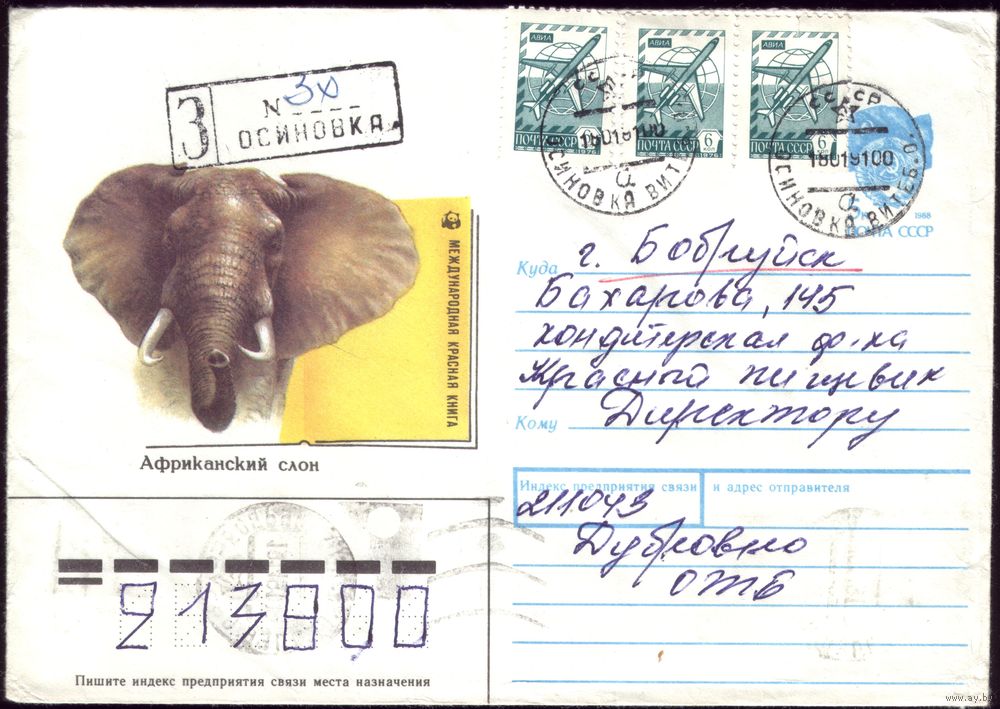 З
N 30
ОСИНОВКА
МЕЖДУНАРОДНАЯ КРАСНАЯ КНИГА
Африканский слон
АВИА
6 КОП
ПОЧТА СССР
1976
АВИА
6 КОП
ПОЧТА СССР
1976
АВИА
6
ПОЧТА СССР
1976
СССР
18019100
а
ОСИНОВКА ВИТ
СССР
18019100
а
ОСИНОВКА ВИТЕБ.О.
5 к
1988
ПОЧТА СССР
Куда г. Бобруйск
Бахарова, 145
кондитерская ф-ка
Красный пищевик
Кому Директору
Индекс предприятия связи и адрес отправителя
211043
Дубровно
ОТБ
213800
Пишите индекс предприятия связи места назначения
www.ay.by